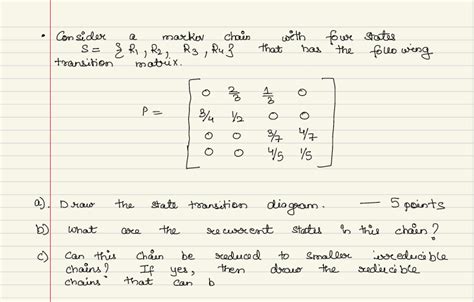 • Consider a markov chain with four states
S = { R1, R2, R3, R4} that has the following
transition matrix.
P = [ 0 2/3 1/3 0
3/4 1/2 0 0
0 0 3/7 4/7
0 0 4/5 1/5 ]
a). Draw the state transition diagram. — 5 points
b) What are the recurrent states in this chain?
c) Can this chain be reduced to smaller irreducible
chains? If yes, then draw the reducible
chains that can b